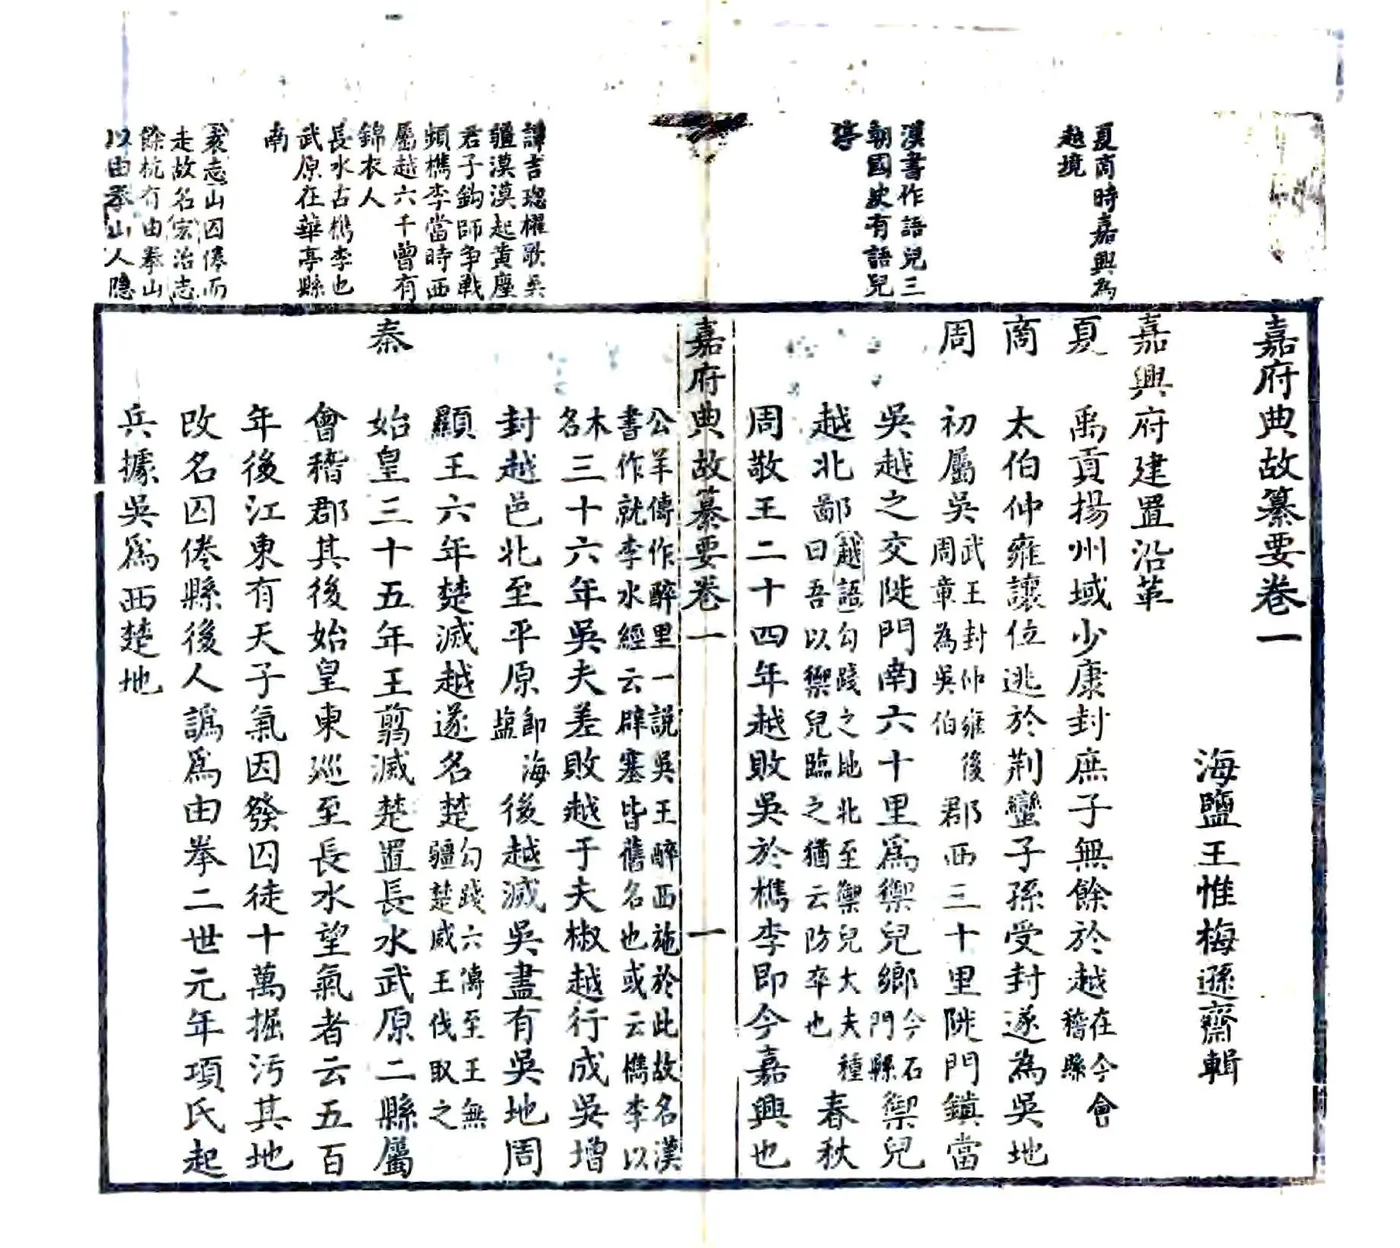 夏商時嘉興為
越境
漢書作語兒三
朝國史有語兒
亭
嘉府典故纂要卷一
海鹽王惟梅遜齋輯
嘉興府建置沿革
夏
禹貢揚州域少康封庶子無餘於越在今會
稽縣
商
太伯仲雍讓位逃於荆蠻子孫受封遂為吳地
周
初屬吳武王封仲雍後
周章為吳伯
郡西三十里陡門鎮當
吳越之交陡門南六十里爲禦兒鄉今石
門縣
禦兒
越北鄙越語勾踐之地北至禦兒大夫種
曰吾以禦兒臨之猶云防卒也
春秋
周敬王二十四年越敗吳於檇李即今嘉興也
嘉府典故纂要卷一
一
譚吉璁櫂歌吳
疆漠漠起黃塵
君子鈎師争戰
頻檇李當時西
屬越六千曾有
錦衣人
長水古檇李也
武原在華亭縣
南
袁志山囚倦而
走故名宏治志
餘杭有由拳山
以由拳山人隱
公羊傳作醉里一說吳王醉西施於此故名漢
書作就李水經云辟塞皆舊名也或云檇李以
木
名
三十六年吳夫差敗越于夫椒越行成吳增
封越邑北至平原即海
盐
後越滅吳盡有吳地周
顯王六年楚滅越遂名楚勾踐六傳至王無
疆楚威王伐取之
秦
始皇三十五年王翦滅楚置長水武原二縣屬
會稽郡其後始皇東廵至長水望氣者云五百
年後江東有天子氣因發囚徒十萬掘汚其地
改名囚倦縣後人譌爲由拳二世元年項氏起
兵據吳爲西楚地